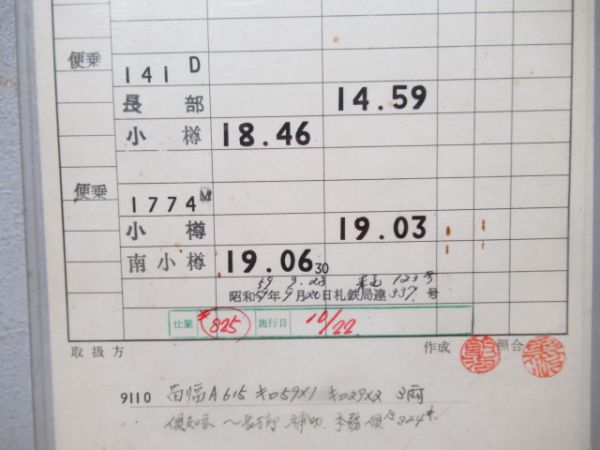 便乗
141D
長部 14.59
小樽 18.46
便乗
1774M
小樽 19.03
南小樽 19.06 30
昭和 年9月20日札鉄局達337号
仕業 #825 施行日 10/22
取扱方 作成 照合
9110 苗穂A615 キロ59×1 キロ29×2 3両